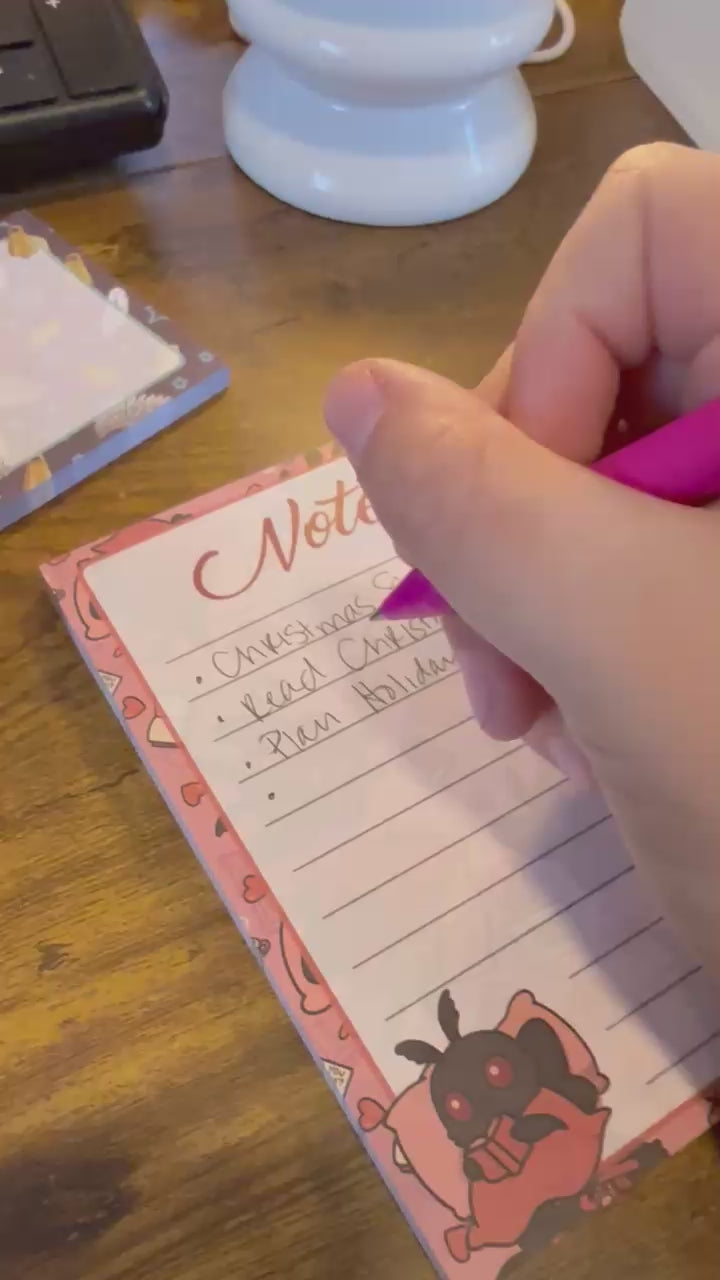 Note
• Christmas
• Read Christ
• Plan Holiday
•